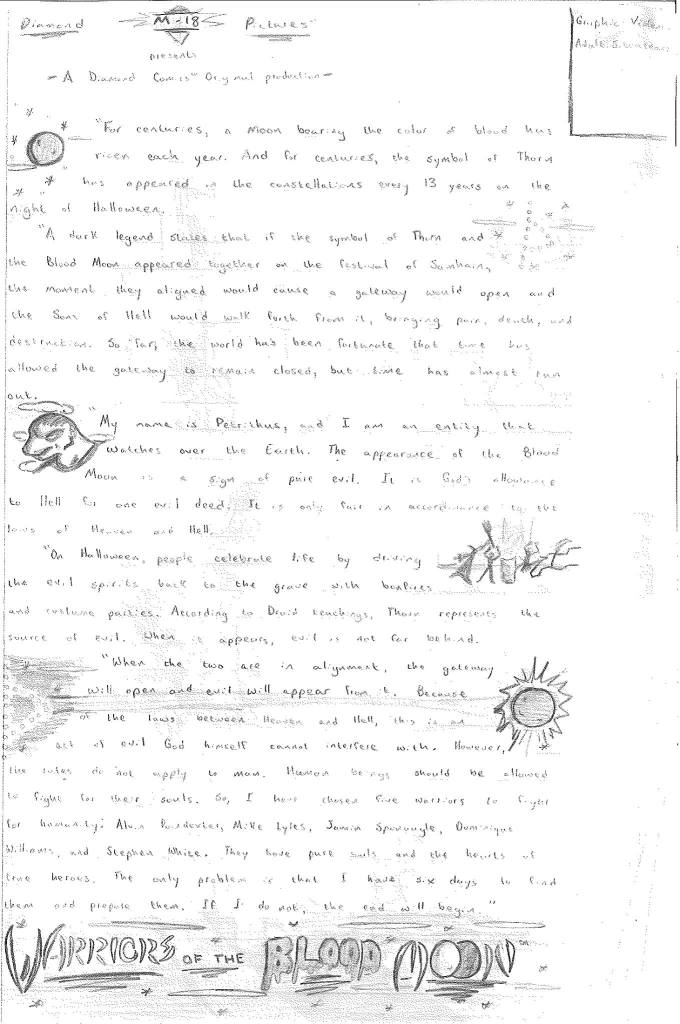 Diamond M-18 Pictures™
presents
- A Diamond Comics™ Original production -
Graphic Violence
Adult Situations
"For centuries, a moon bearing the color of blood has
risen each year. And for centuries, the symbol of Thorn
has appeared in the constellations every 13 years on the
night of Halloween.
"A dark legend states that if the symbol of Thorn and
the Blood Moon appeared together on the festival of Samhain,
the moment they aligned would cause a gateway would open and
the Sons of Hell would walk forth from it, bringing pain, death, and
destruction. So far, the world has been fortunate that time has
allowed the gateway to remain closed, but time has almost run
out.
"My name is Petrithus, and I am an entity that
watches over the Earth. The appearance of the Blood
Moon is a sign of pure evil. It is God's allowance
to Hell for one evil deed. It is only fair in accordance to the
laws of Heaven and Hell.
"On Halloween, people celebrate life by driving
the evil spirits back to the grave with bonfires
and costume parties. According to Druid teachings, Thorn represents the
source of evil. When it appears, evil is not far behind.
"When the two are in alignment, the gateway
will open and evil will appear from it. Because
of the laws between Heaven and Hell, this is an
act of evil God himself cannot interfere with. However,
the rules do not apply to man. Human beings should be allowed
to fight for their souls. So, I have chosen five warriors to fight
for humanity: Alvin Poindexter, Mike Lyles, Jamin Spurougle, Dominique
Williams, and Stephen White. They have pure souls and the hearts of
true heroes. The only problem is that I have six days to find
them and prepare them. If I do not, the end will begin."
WARRIORS OF THE BLOOD MOON™